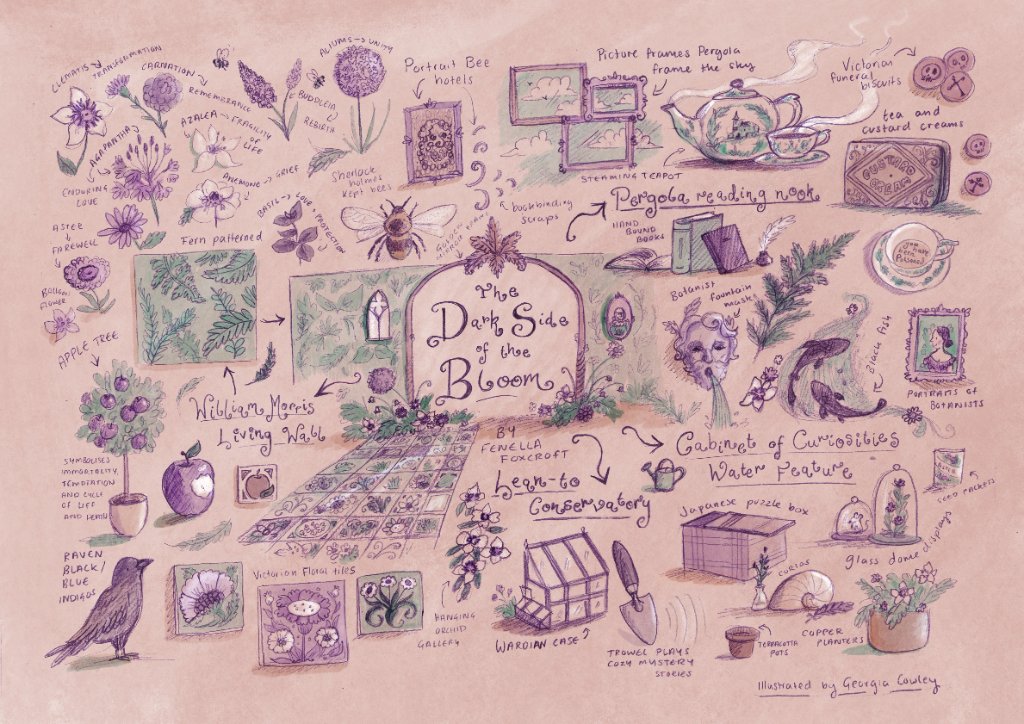 CLEMATIS
TRANSFORMATION
CARNATION
REMEMBRANCE
ALIUMS → UNITY
BUDDLEIA
REBIRTH
AZALEA → FRAGILITY
OF LIFE
AGAPANTHA
ENDURING
LOVE
ANEMONE → GRIEF
ASTER
FAREWELL
BALLOON
FLOWER
BASIL → LOVE + PROTECTION
Sherlock
holmes
kept bees
Portrait Bee
hotels
bookbinding
scraps
Picture frames Pergola
frame the sky
STEAMING TEAPOT
Victorian
funeral
biscuits
tea and
custard creams
CUSTARD
CREAM
Pergola reading nook
HAND
BOUND
BOOKS
You
have
Been
Poisoned
Fern patterned
The
Dark Side
of the
Bloom
BY
FENELLA
FOXCROFT
Botanist fountain
mask
Black fish
PORTRAITS OF
BOTANISTS
APPLE TREE
William Morris
Living Wall
SYMBOLISES
IMMORTALITY,
TEMPTATION
AND CYCLE
OF LIFE
AND
Cabinet of Curiosities
Water Feature
SEED PACKETS
Lean-to
Conservatory
Japanese puzzle box
glass dome displays
RAVEN
BLACK/
BLUE
INDIGOS
Victorian Floral tiles
HANGING
ORCHID
GALLERY
WARDIAN CASE?
TROWEL PLAYS
COZY MYSTERY
STORIES
CURIOS
TERRACOTTA
POTS
COPPER
PLANTERS
Illustrated by Georgia Cowley